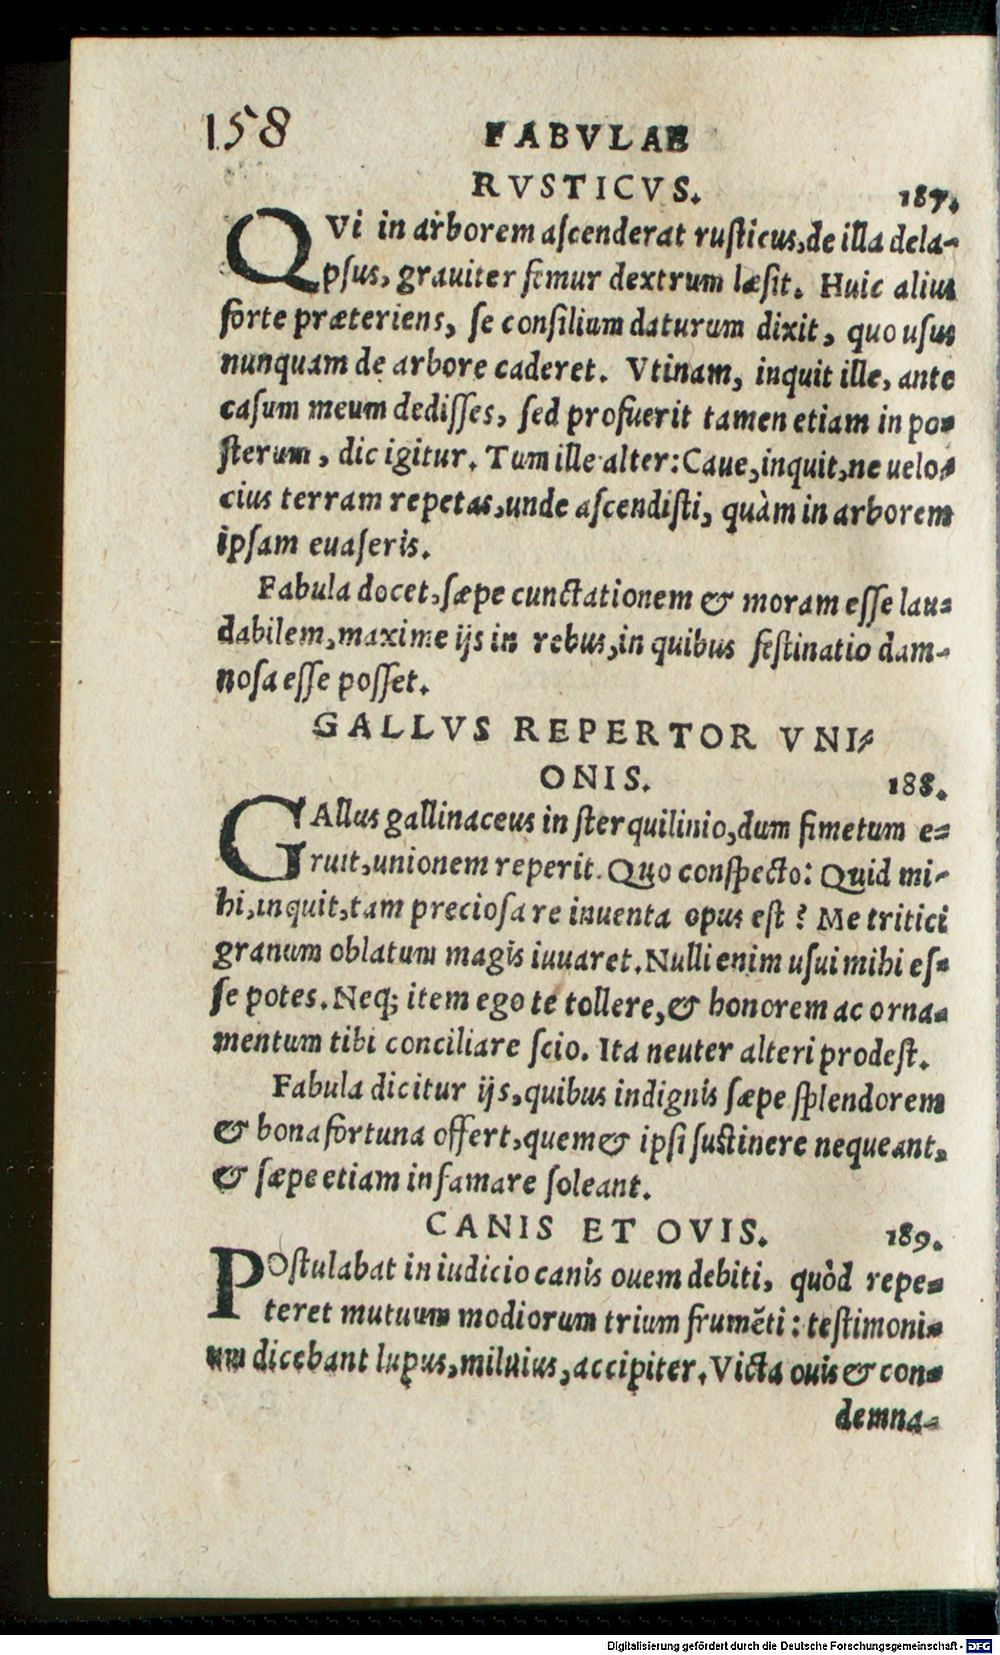 158
FABVLAE
RVSTICVS. 187.
QVi in arborem ascenderat rusticus, de illa dela-
psus, grauiter femur dextrum læsit. Huic alius
forte præteriens, se consilium daturum dixit, quo usus
nunquam de arbore caderet. Vtinam, inquit ille, ante
casum meum dedisses, sed profuerit tamen etiam in po-
sterum, dic igitur. Tum ille alter: Caue, inquit, ne uelo-
cius terram repetas, unde ascendisti, quàm in arborem
ipsam euaseris.
Fabula docet, sæpe cunctationem & moram esse lau-
dabilem, maxime ijs in rebus, in quibus festinatio dam-
nosa esse posset.
GALLVS REPERTOR VNI-
ONIS. 188.
GAllus gallinaceus in sterquilinio, dum fimetum e-
ruit, unionem reperit. Quo conspecto: Quid mi-
hi, inquit, tam preciosa re inuenta opus est? Me tritici
granum oblatum magis iuuaret. Nulli enim usui mihi es-
se potes. Neq; item ego te tollere, & honorem ac orna-
mentum tibi conciliare scio. Ita neuter alteri prodest.
Fabula dicitur ijs, quibus indignis sæpe splendorem
& bona fortuna offert, quem & ipsi sustinere nequeant,
& sæpe etiam infamare soleant.
CANIS ET OVIS. 189.
POstulabat in iudicio canis ouem debiti, quòd repe-
teret mutuum modiorum trium frumẽti: testimoni-
um dicebant lupus, miluius, accipiter. Victa ouis & con-
demna-
Digitalisierung gefördert durch die Deutsche Forschungsgemeinschaft - DFG